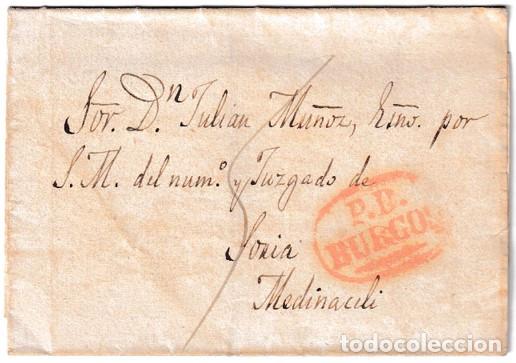 Sor. Dn Julian Muñoz, Esno. por
S. M. del num.º y Juzgado de
Soria
Medinaceli
P.B.
BURGOS
todocoleccion